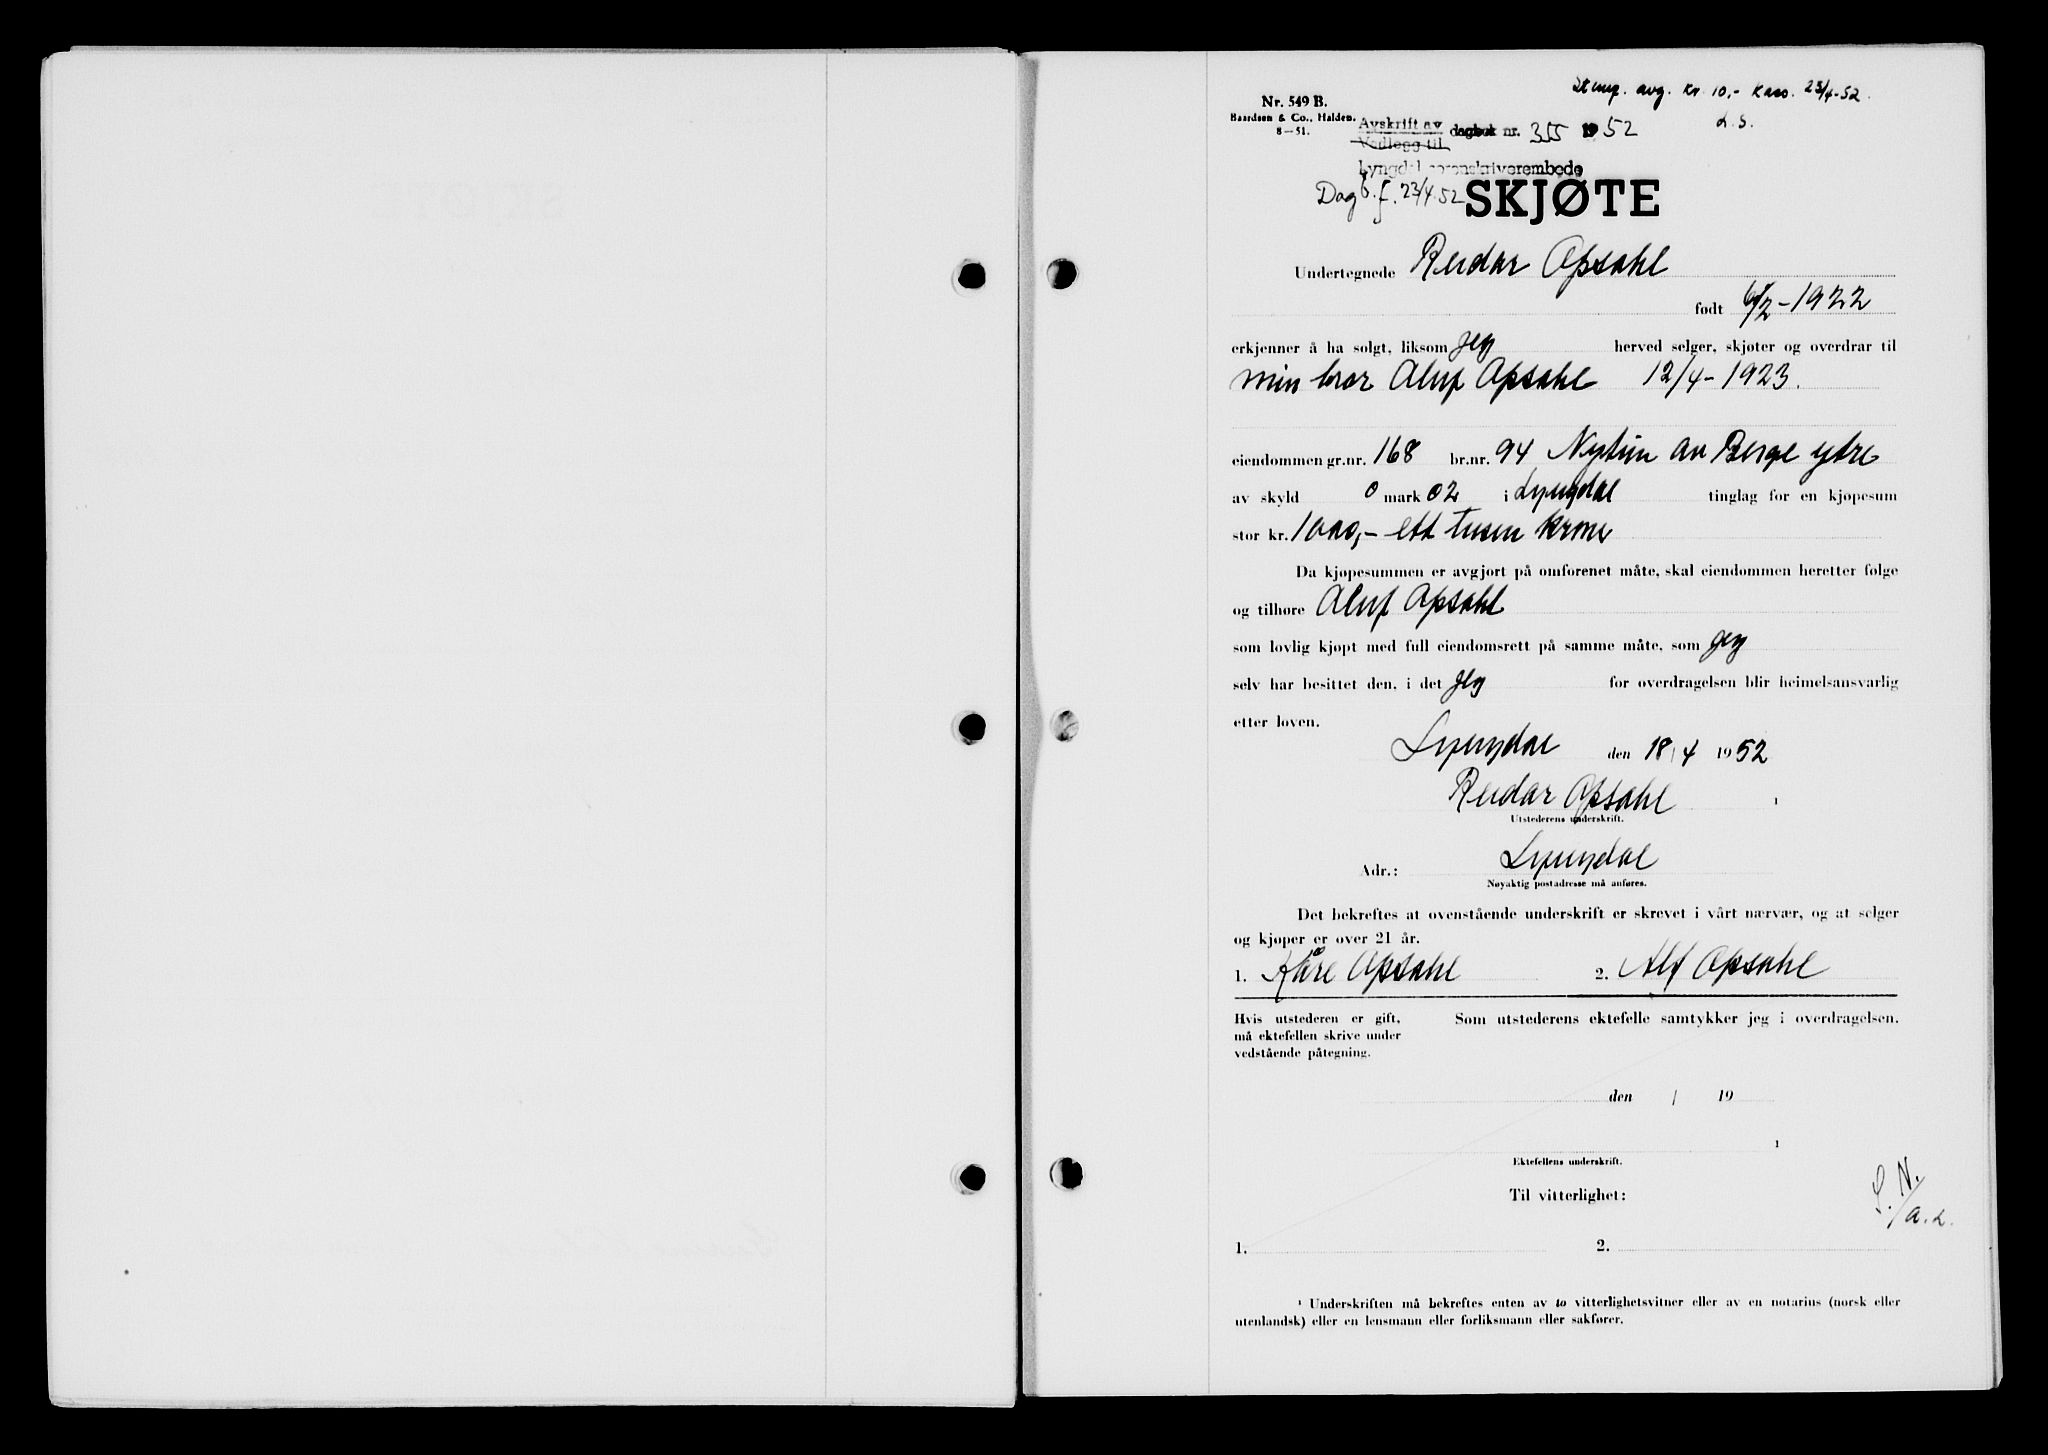 Stemp. avg. kr. 10,- kass. 23/4-52.
L.S.
Nr. 549 B.
Baardsen & Co., Halden.
8—51.
Avskrift av dagbok nr. 355 1952
Vedlegg til
Lyngdal sorenskriverembede
Dagb.f. 23/4 52
SKJØTE
Undertegnede Reidar Opsahl
født 6/2-1922
erkjenner å ha solgt, liksom jeg herved selger, skjøter og overdrar til
min bror Aluf Opsahl 12/4-1923.
eiendommen gr.nr. 168 br.nr. 94 Nytun av Berge ytre
av skyld 0 mark 02 i Lyngdal tinglag for en kjøpesum
stor kr. 1000,- ett tusen kroner
Da kjøpesummen er avgjort på omforenet måte, skal eiendommen heretter følge
og tilhøre Aluf Opsahl
som lovlig kjøpt med full eiendomsrett på samme måte, som jeg
selv har besittet den, i det jeg for overdragelsen blir heimelsansvarlig
etter loven.
Lyngdal den 18/4 1952
Reidar Opsahl 1
Utstederens underskrift.
Adr.: Lyngdal
Nøyaktig postadresse må anføres.
Det bekreftes at ovenstående underskrift er skrevet i vårt nærvær, og at selger
og kjøper er over 21 år.
1. Kåre Opsahl 2. Alf Opsahl
Hvis utstederen er gift, Som utstederens ektefelle samtykker jeg i overdragelsen.
må ektefellen skrive under
vedstående påtegning.
den / 19
1
Ektefellens underskrift.
Til vitterlighet:
S.N.
/a.L.
1. 2.
¹ Underskriften må bekreftes enten av to vitterlighetsvitner eller av en notarius (norsk eller
utenlandsk) eller en lensmann eller forliksmann eller sakfører.